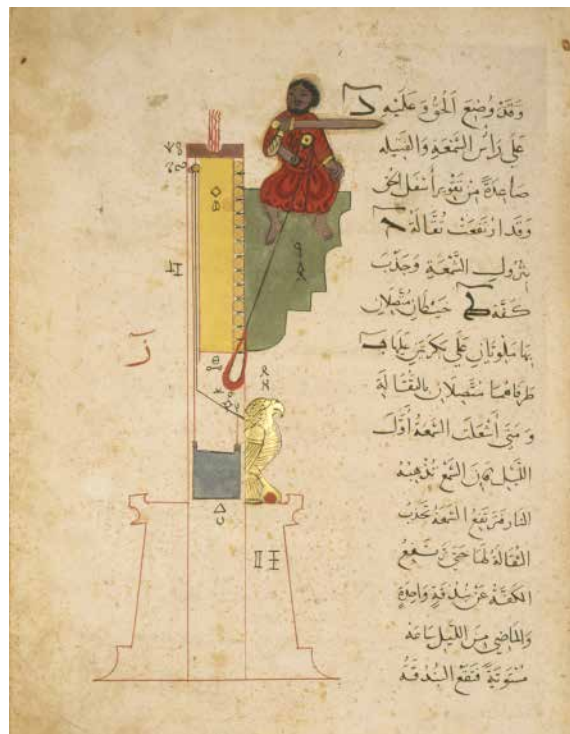 وَقَدْ وُضِعَ الْحُقُّ وَعَلَيْهِ
عَلَى رَأْسِ الشَّمْعَةِ وَالفَتِيله
صَاعِدَةٌ مِنْ تَقْوِيرِ أَسْفَلِ الحُق
وَقَدِ ارْتَفَعَتْ ثُقَّالَة
بنُزُولِ الشَّمْعَةِ وَجَذْب
كفَّة خَيْطَانِ مُتَّصِلَانِ
بهَا مَلْوِيَّانِ عَلَى بَكْرَتَيْنِ عَلَيْهَا
طَرَفَاهُمَا مُتَّصِلَانِ بالثقَّالَة
وَمَتَى أُشْعِلَتِ الشَّمْعَةُ أَوَّل
اللَّيْلِ فَإِنَّ الشَّمْعَ تُذْهِبُهُ
النَّارُ فَتَرْتَفِعُ الشَّمْعَةُ بجَذْبِ
الثقَّالَةِ لَهَا حَتَّى تَرْتَفِعُ
الكَفَّةُ عَنْ بُنْدُقَةٍ وَاحِدَةٍ
وَالْمَاضِي مِنَ اللَّيْلِ سَاعَة
مُسْتَوِيَةٌ فَتَقَعُ البُنْدُقَةُ